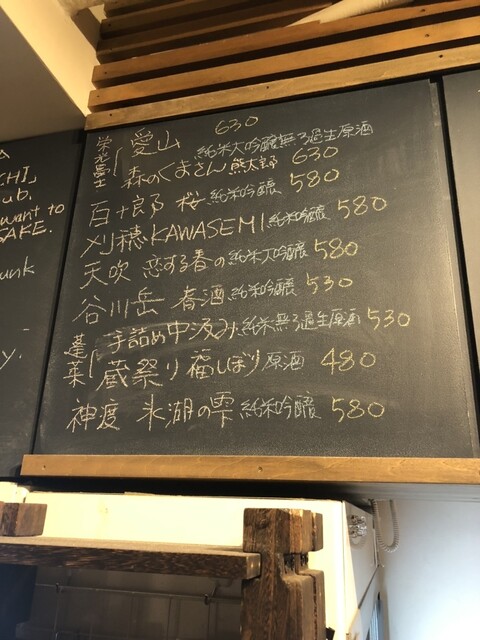 CHI,
ub.
want to
SAKE.
unk
y.
栄光冨士 愛山 純米大吟醸無ろ過生原酒 630
森のくまさん 熊太郎 630
百十郎 桜 純米吟醸 580
刈穂 KAWASEMI 純米吟醸 580
天吹 恋する春の純米大吟醸 580
谷川岳 春酒 純米吟醸 530
蓬莱 手詰め中汲み 純米無ろ過生原酒 530
蔵祭り 福しぼり 原酒 480
神渡 氷湖の雫 純米吟醸 580